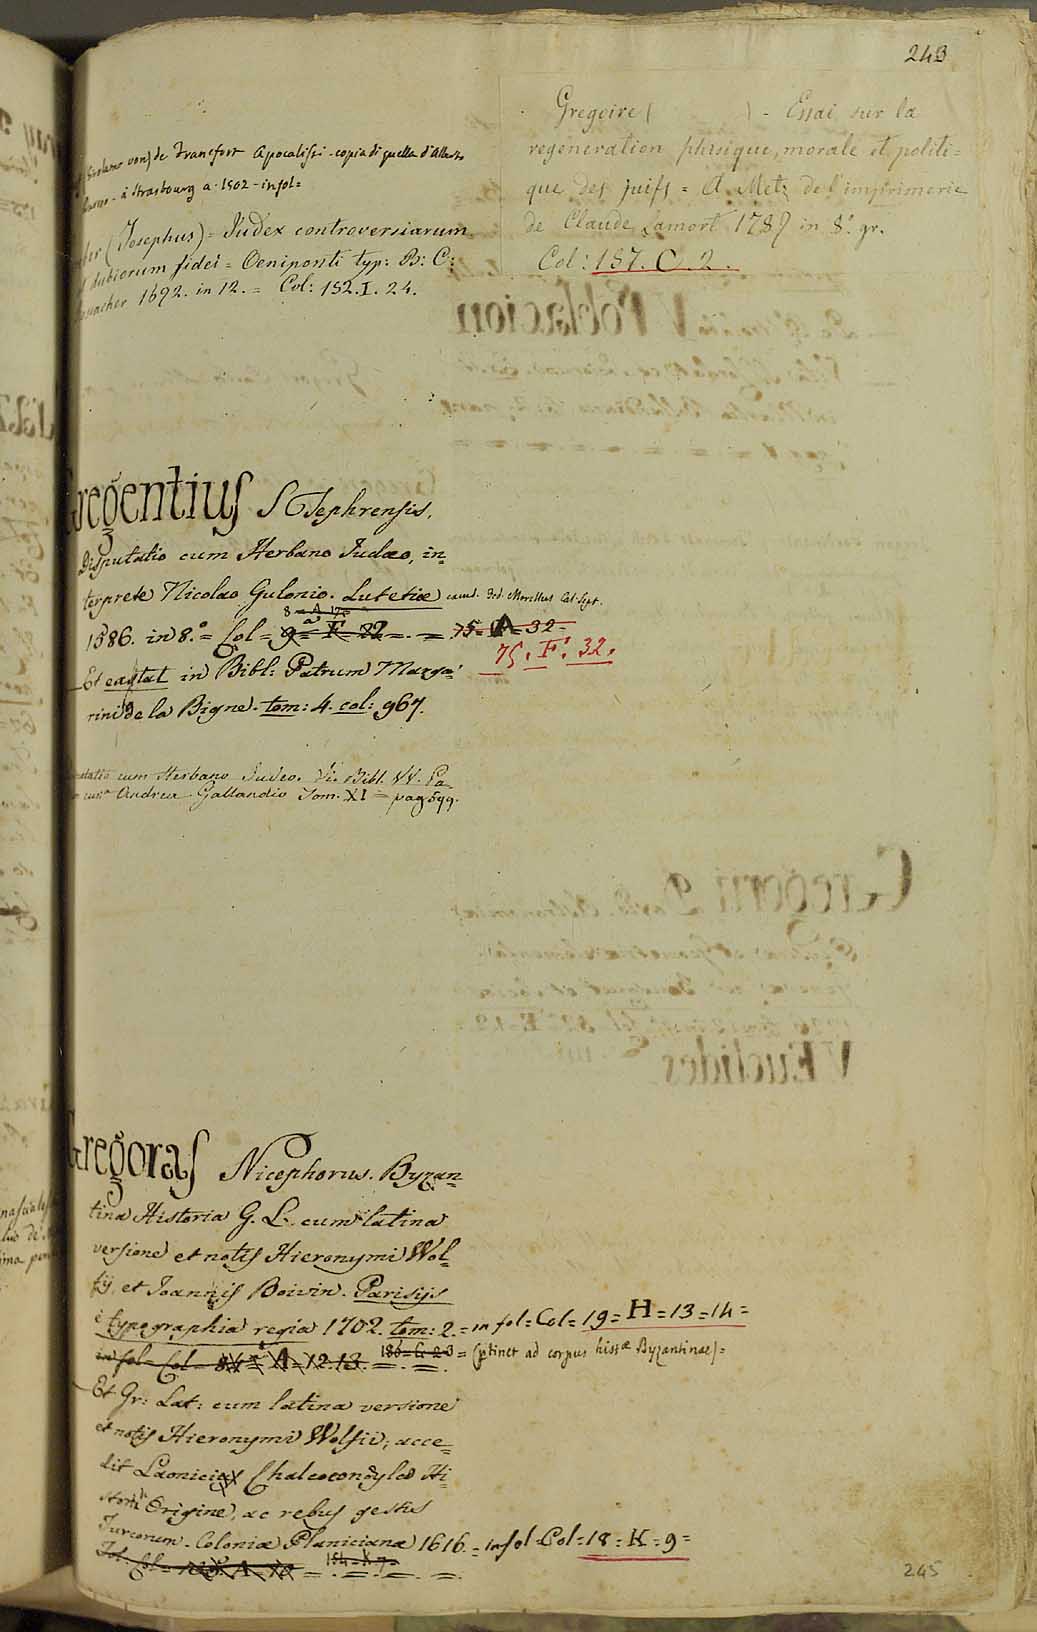 243
de Francfort Apocalissi - copia di quella d'Alberto
- à Strasbourg a. 1502 - in fol =
(Josephus) = Judex controversiarum
dubiorum fidei = Oeniponti typ: B: C:
1692. in 12. = Col: 152. I. 24.
Gregoire ( ) - Essai sur la
regeneration phisique, morale et politi=
que des juifs = A Metz de l'imprimerie
de Claude Lamort 1789 in 8.° gr.
Col: 157. C. 2.
Gregentius S Tephrensis.
Disputatio cum Herbano Judæo, in=
terprete Nicolao Gulonio. Lutetiæ Fed. Morellus
1586. in 8.° = Col = 9 = F = 22 = 75 = A = 32 =
75. F. 32.
Et extat in Bibl: Patrum Marga=
rini de la Bigne. tom: 4. col: 967.
cum Herbano Judeo. Bibl. VV. Pa
Andrea Gallandio Tom. XI = pag 599.
Gregoras Nicephorus. Byzan=
tina Historia G. L. cum latina
versione et notis Hieronymi Wol=
fij, et Joannis Boivin. Parisijs
è typographia regia 1702. tom: 2. = in fol = Col = 19 = H = 13 = 14 =
in fol = Col = A = 12. 13. = (ptinet ad corpus hissæ Byzantinae) =
Et Gr: Lat: cum latina versione
et notis Hieronymi Wolfii; acce=
dit Laonici Chalcocondylæ Hi=
Origine, ac rebus gestis
Turcorum. Coloniæ Planiciana 1616. = in fol Col = 18 = K = 9 =
fol: Col =
245